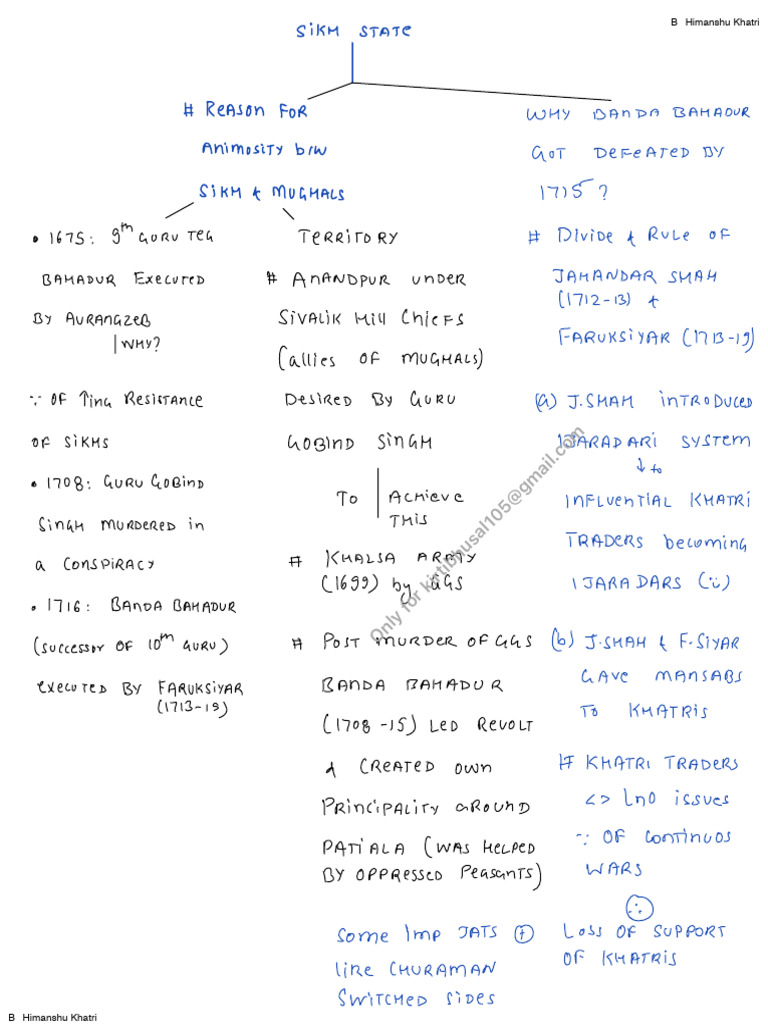 B Himanshu Khatri
SIKH STATE
# REASON FOR
ANIMOSITY b/w
SIKH & MUGHALS
• 1675: 9th GURU TEG
BAHADUR EXECUTED
BY AURANGZEB
WHY?
∵ OF ↑ing RESISTANCE
OF SIKHS
• 1708: GURU GOBIND
SINGH MURDERED in
a CONSPIRACY
• 1716: BANDA BAHADUR
(SUCCESSOR OF 10th GURU)
EXECUTED BY FARUKSIYAR
(1713-19)
TERRITORY
# ANANDPUR UNDER
SIVALIK HILL CHIEFS
(allies OF MUGHALS)
DESIRED BY GURU
GOBIND SINGH
TO ACHIEVE
THIS
# KHALSA ARMY
(1699) by GGS
# POST MURDER OF GGS
BANDA BAHADUR
(1708-15) LED REVOLT
& CREATED OWN
PRINCIPALITY AROUND
PATIALA (WAS HELPED
BY OPPRESSED PEASANTS)
WHY BANDA BAHADUR
GOT DEFEATED BY
1715?
# DIVIDE & RULE OF
JAHANDAR SHAH
(1712-13) &
FARUKSIYAR (1713-19)
(a) J.SHAH INTRODUCED
IJARADARI SYSTEM
↓ to
INFLUENTIAL KHATRI
TRADERS becoming
IJARADARS (ü)
(b) J.SHAH & F.SIYAR
GAVE MANSABS
TO KHATRIS
# KHATRI TRADERS
<> Ln0 issues
∵ OF CONTINUOS
WARS
∴
SOME IMP JATS ⊕ LOSS OF SUPPORT
LIKE CHURAMAN OF KHATRIS
SWITCHED SIDES
Only for kirtibhusal105@gmail.com
B Himanshu Khatri